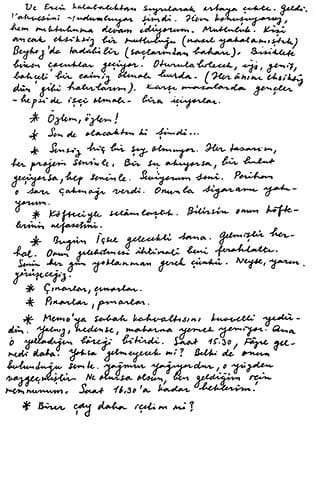 Ve Erin kalabalıktan sıyrılarak ortaya çıktı. Geldi.
kahvesini yudumluyor şimdi. Hem konuşuyoruz,
hem mektubuma devam ediyorum. Mutluluk. Kişi
ancak eksiksiz bir mutluluğu (nasıl yakalamıştık)
Beykoz'da tadabilir (saçlarından kadar). Bisiklete
binen çocuklar geçiyor. Oturulabilecek, iyi, geniş,
bahçeli bir cami olmalı burda. (Her anını eksiksiz
dün gibi hatırlarım). Karşı masalarda gençler
- hepsi de işçi olmalı - bira içiyorlar.
* Özlem, özlem!
* Sen de olacaktın ki şimdi...
* Sensiz hiç bir şey olmuyor. Her tasarım,
her projem seninle. Bir su akıyorsa, bir bulut
geçiyorsa, hep seninle. Seviyorum seni. Perihan
o sarı çakmağı verdi. Onunla sigaramı yakı-
yorum.
* Köfteciyle selâmlaştık. Bilirsin onun köfte-
lerinin nefasetini.
* Bugün İçse gelecekti sana. Gelmiştir her-
hal. Onun gelebilmesi ihtimali beni ferahlatır.
Senin her gün yoklanman gerek çünkü. Neyse, yarın
görüşeceğiz.
* Çınarlar, çınarlar.
* Pınarlar, pınarlar.
* Memo'ya sabah kahvaltısını kuvvetli yedir-
dim. Yalnız, nedense, makarna yemek yemiyor. Ama
o yolladığın böreği bitirdi. Saat 15.30, Füge gel-
medi daha. Yoksa gelmeyecek mi? Belki de onun
bulunduğu semte yağmur yağıyordur, o yüzden
vazgeçmiştir. Ne olursa olsun, ben geldiğim için
memnunum. Saat 16.30'a kadar beklerim.
* Birer çay daha içelim mi?